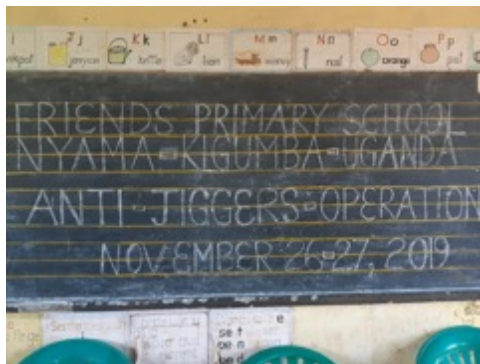 Jj Kk Ll Mm Nn Oo Pp
jerrycan kettle nail orange pot
FRIENDS PRIMARY SCHOOL
NYAMA-KIGUMBA-UGANDA
ANTI-JIGGERS-OPERATION
NOVEMBER 26-27, 2019
e
set
bed